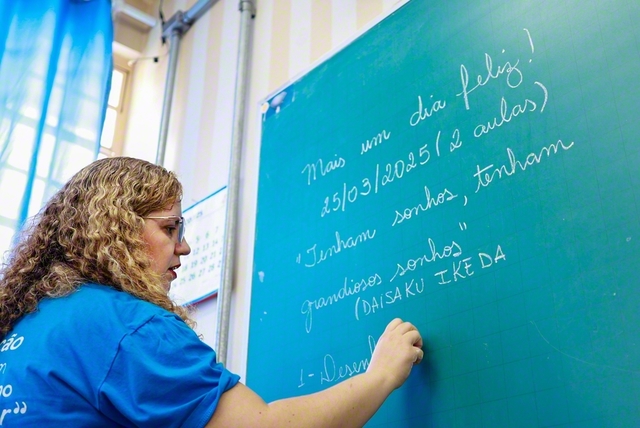 Mais um dia feliz!
25/03/2025 (2 aulas)
"Tenham sonhos, tenham
grandiosos sonhos"
(DAISAKU IKEDA
1- Desenh